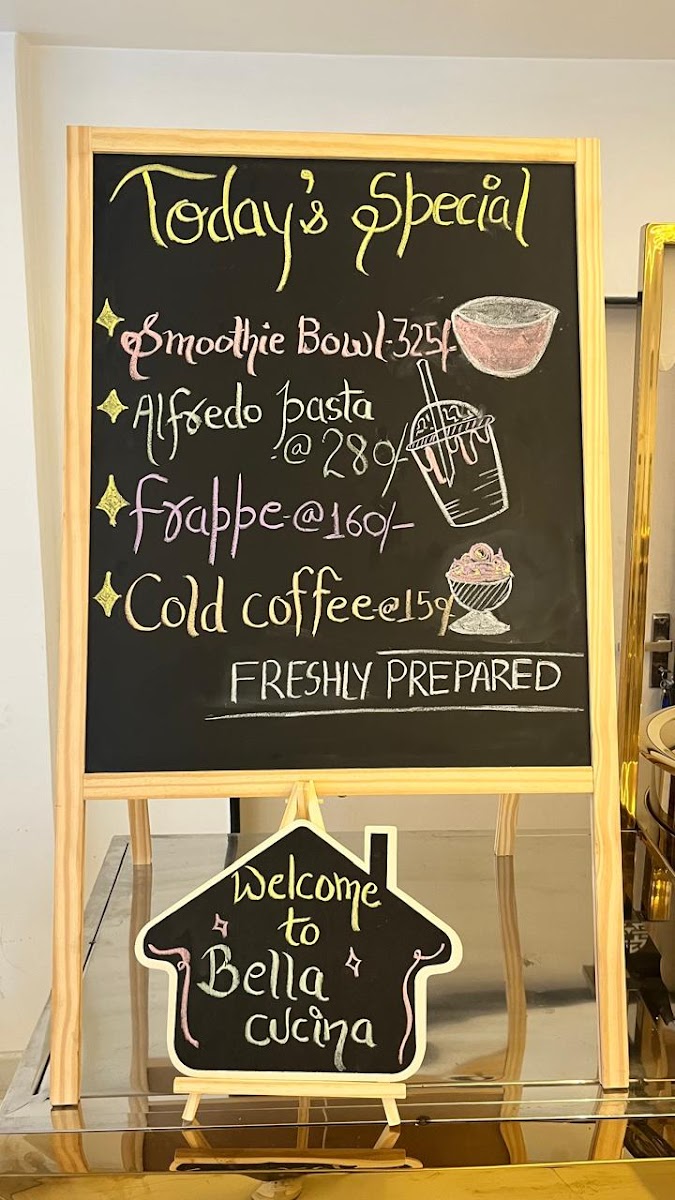 Today's Special
Smoothie Bowl-325/-
Alfredo pasta
@ 280/-
Frappe-@160/-
Cold coffee-@159
FRESHLY PREPARED
Welcome
to
Bella
cucina